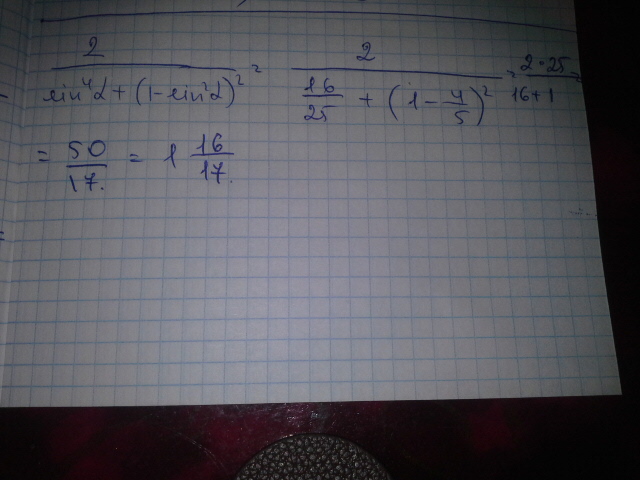 2/(sin⁴α + (1 - sin²α)²) = 2/(16/25 + (1 - 4/5)²) = 2·25/(16+1) =
= 50/17. = 1 16/17.